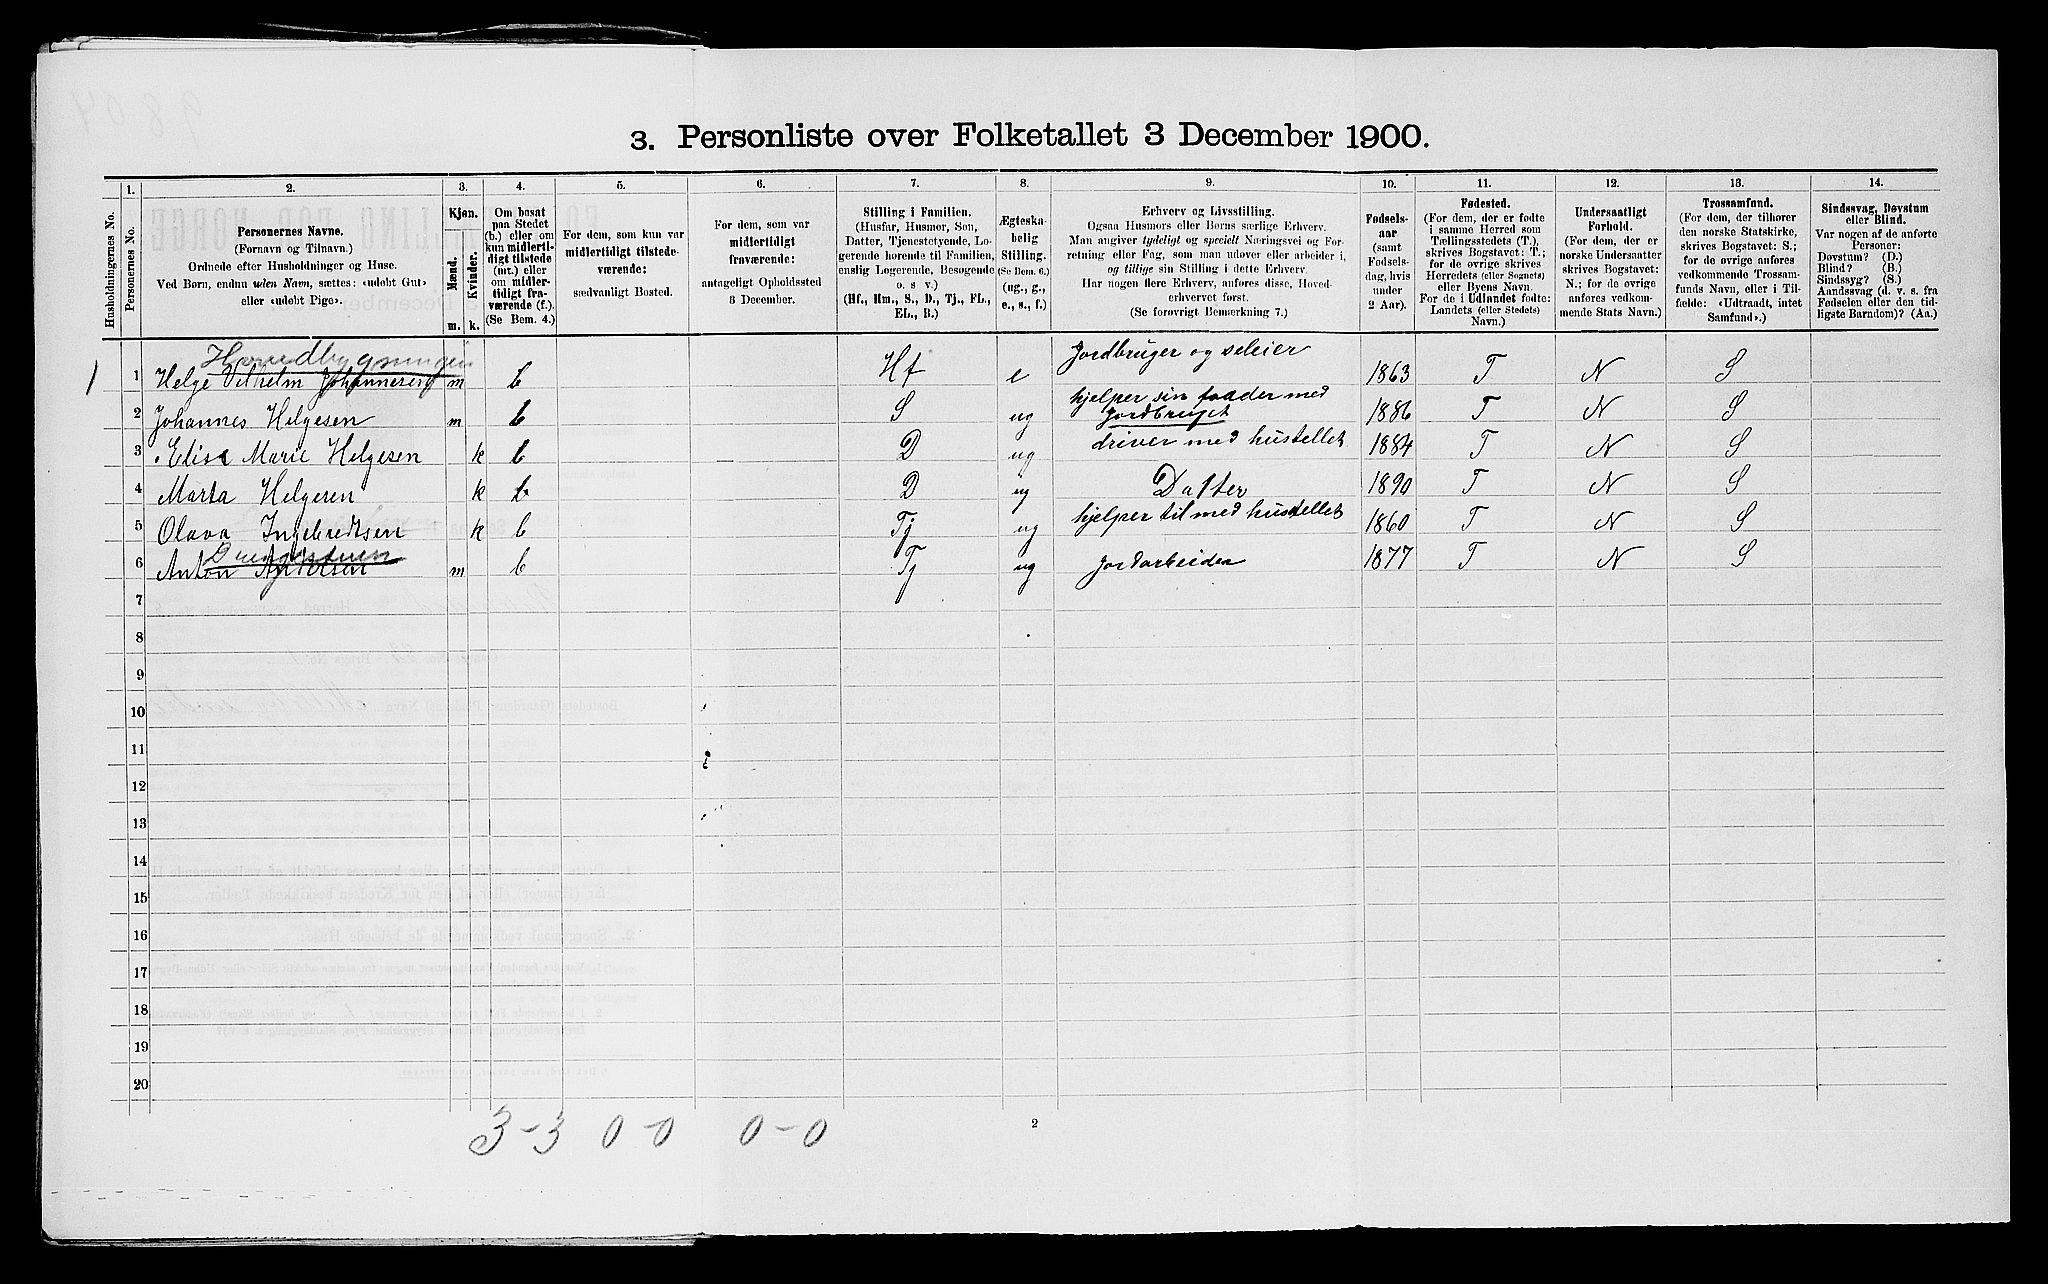 3. Personliste over Folketallet 3 December 1900.
1. 2. 3. 4. 5. 6. 7. 8. 9. 10. 11. 12. 13. 14.
Husholdningernes No.
Personernes No.
Personernes Navne.
(Fornavn og Tilnavn.)
Ordnede efter Husholdninger og Huse.
Ved Børn, endnu uden Navn, sættes: «udøbt Gut»
eller «udøbt Pige».
Kjøn.
Mænd.
Kvinder.
m. k.
Om bosat
paa Stedet
(b.) eller om
kun midlerti-
digt tilstede
(mt.) eller
om midler-
tidigt fra-
værende (f.).
(Se Bem. 4.)
For dem, som kun var
midlertidigt tilstede-
værende:
sædvanligt Bosted.
For dem, som var
midlertidigt
fraværende:
antageligt Opholdssted
3 December.
Stilling i Familien.
(Husfar, Husmor, Søn,
Datter, Tjenestetyende, Lo-
gerende hørende til Familien,
enslig Logerende, Besøgende
o. s v.)
(Hf., Hm., S., D., Tj., FL.,
EL., B.)
Ægteska-
belig
Stilling.
(Se Bem. 6.)
(ug., g.,
e., s., f.)
Erhverv og Livsstilling.
Ogsaa Husmors eller Børns særlige Erhverv.
Man angiver tydeligt og specielt Næringsvei og For-
retning eller Fag, som man udøver eller arbeider i,
og tillige sin Stilling i dette Erhverv.
Har nogen flere Erhverv, anføres disse, Hoved-
erhvervet først.
(Se forøvrigt Bemærkning 7.)
Fødsels-
aar
(samt
Fødsels-
dag, hvis
under
2 Aar).
Fødested.
(For dem, der er fødte
i samme Herred som
Tællingsstedets (T.),
skrives Bogstavet: T.;
for de øvrige skrives
Herredets (eller Sognets)
eller Byens Navn.
For de i Udlandet fødte:
Landets (eller Stedets)
Navn.)
Undersaatligt
Forhold.
(For dem, der er
norske Undersaatter
skrives Bogstavet:
N.; for de øvrige
anføres vedkom-
mende Stats Navn.)
Trossamfund.
(For dem, der tilhører
den norske Statskirke,
skrives Bogstavet: S.;
for de øvrige anføres
vedkommende Trossam-
funds Navn, eller i Til-
fælde: «Udtraadt, intet
Samfund».)
Sindssvag, Døvstum
eller Blind.
Var nogen af de anførte
Personer:
Døvstum? (D.)
Blind? (B.)
Sindssyg? (S.)
Aandssvag (d. v. s. fra
Fødselen eller den tid-
ligste Barndom)? (Aa.)
Hovedbygningen
1 1 Helge Vilhelm Johannesen m b Hf e Jordbruger og seleier 1863 T N S
2 Johannes Helgesen m b S ug hjelper sin faader med Jordbruget 1886 T N S
3 Elise Marie Helgesen k b D ug driver med hustellet 1884 T N S
4 Marta Helgesen k b D ug Datter 1890 T N S
5 Olava Ingebredtsen k b Tj ug hjelper til med hustellet 1860 T N S
6 Anton Andersen m b Tj ug Jordarbeider 1877 T N S
7
8
9
10
11
12
13
14
15
16
17
18
19
20
3-3 0-0 0-0
2